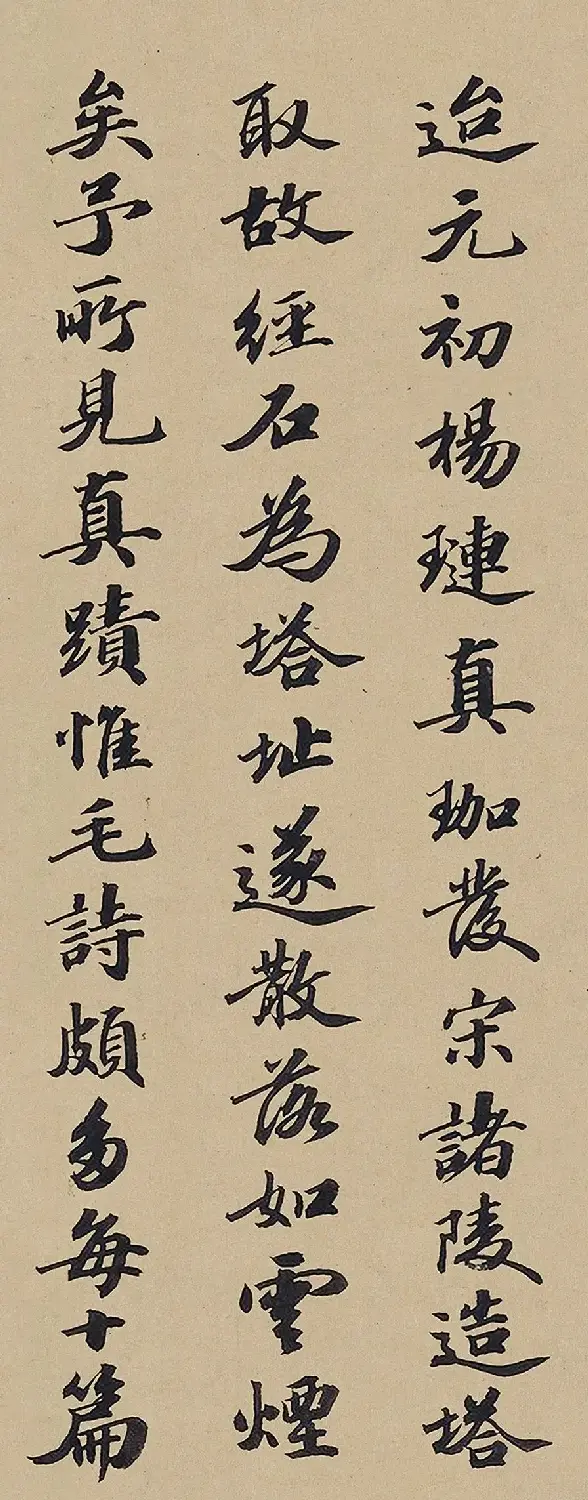 迨元初楊璉真珈發宋諸陵造塔
取故經石為塔址遂散落如雲煙
矣予所見真蹟惟毛詩頗多每十篇